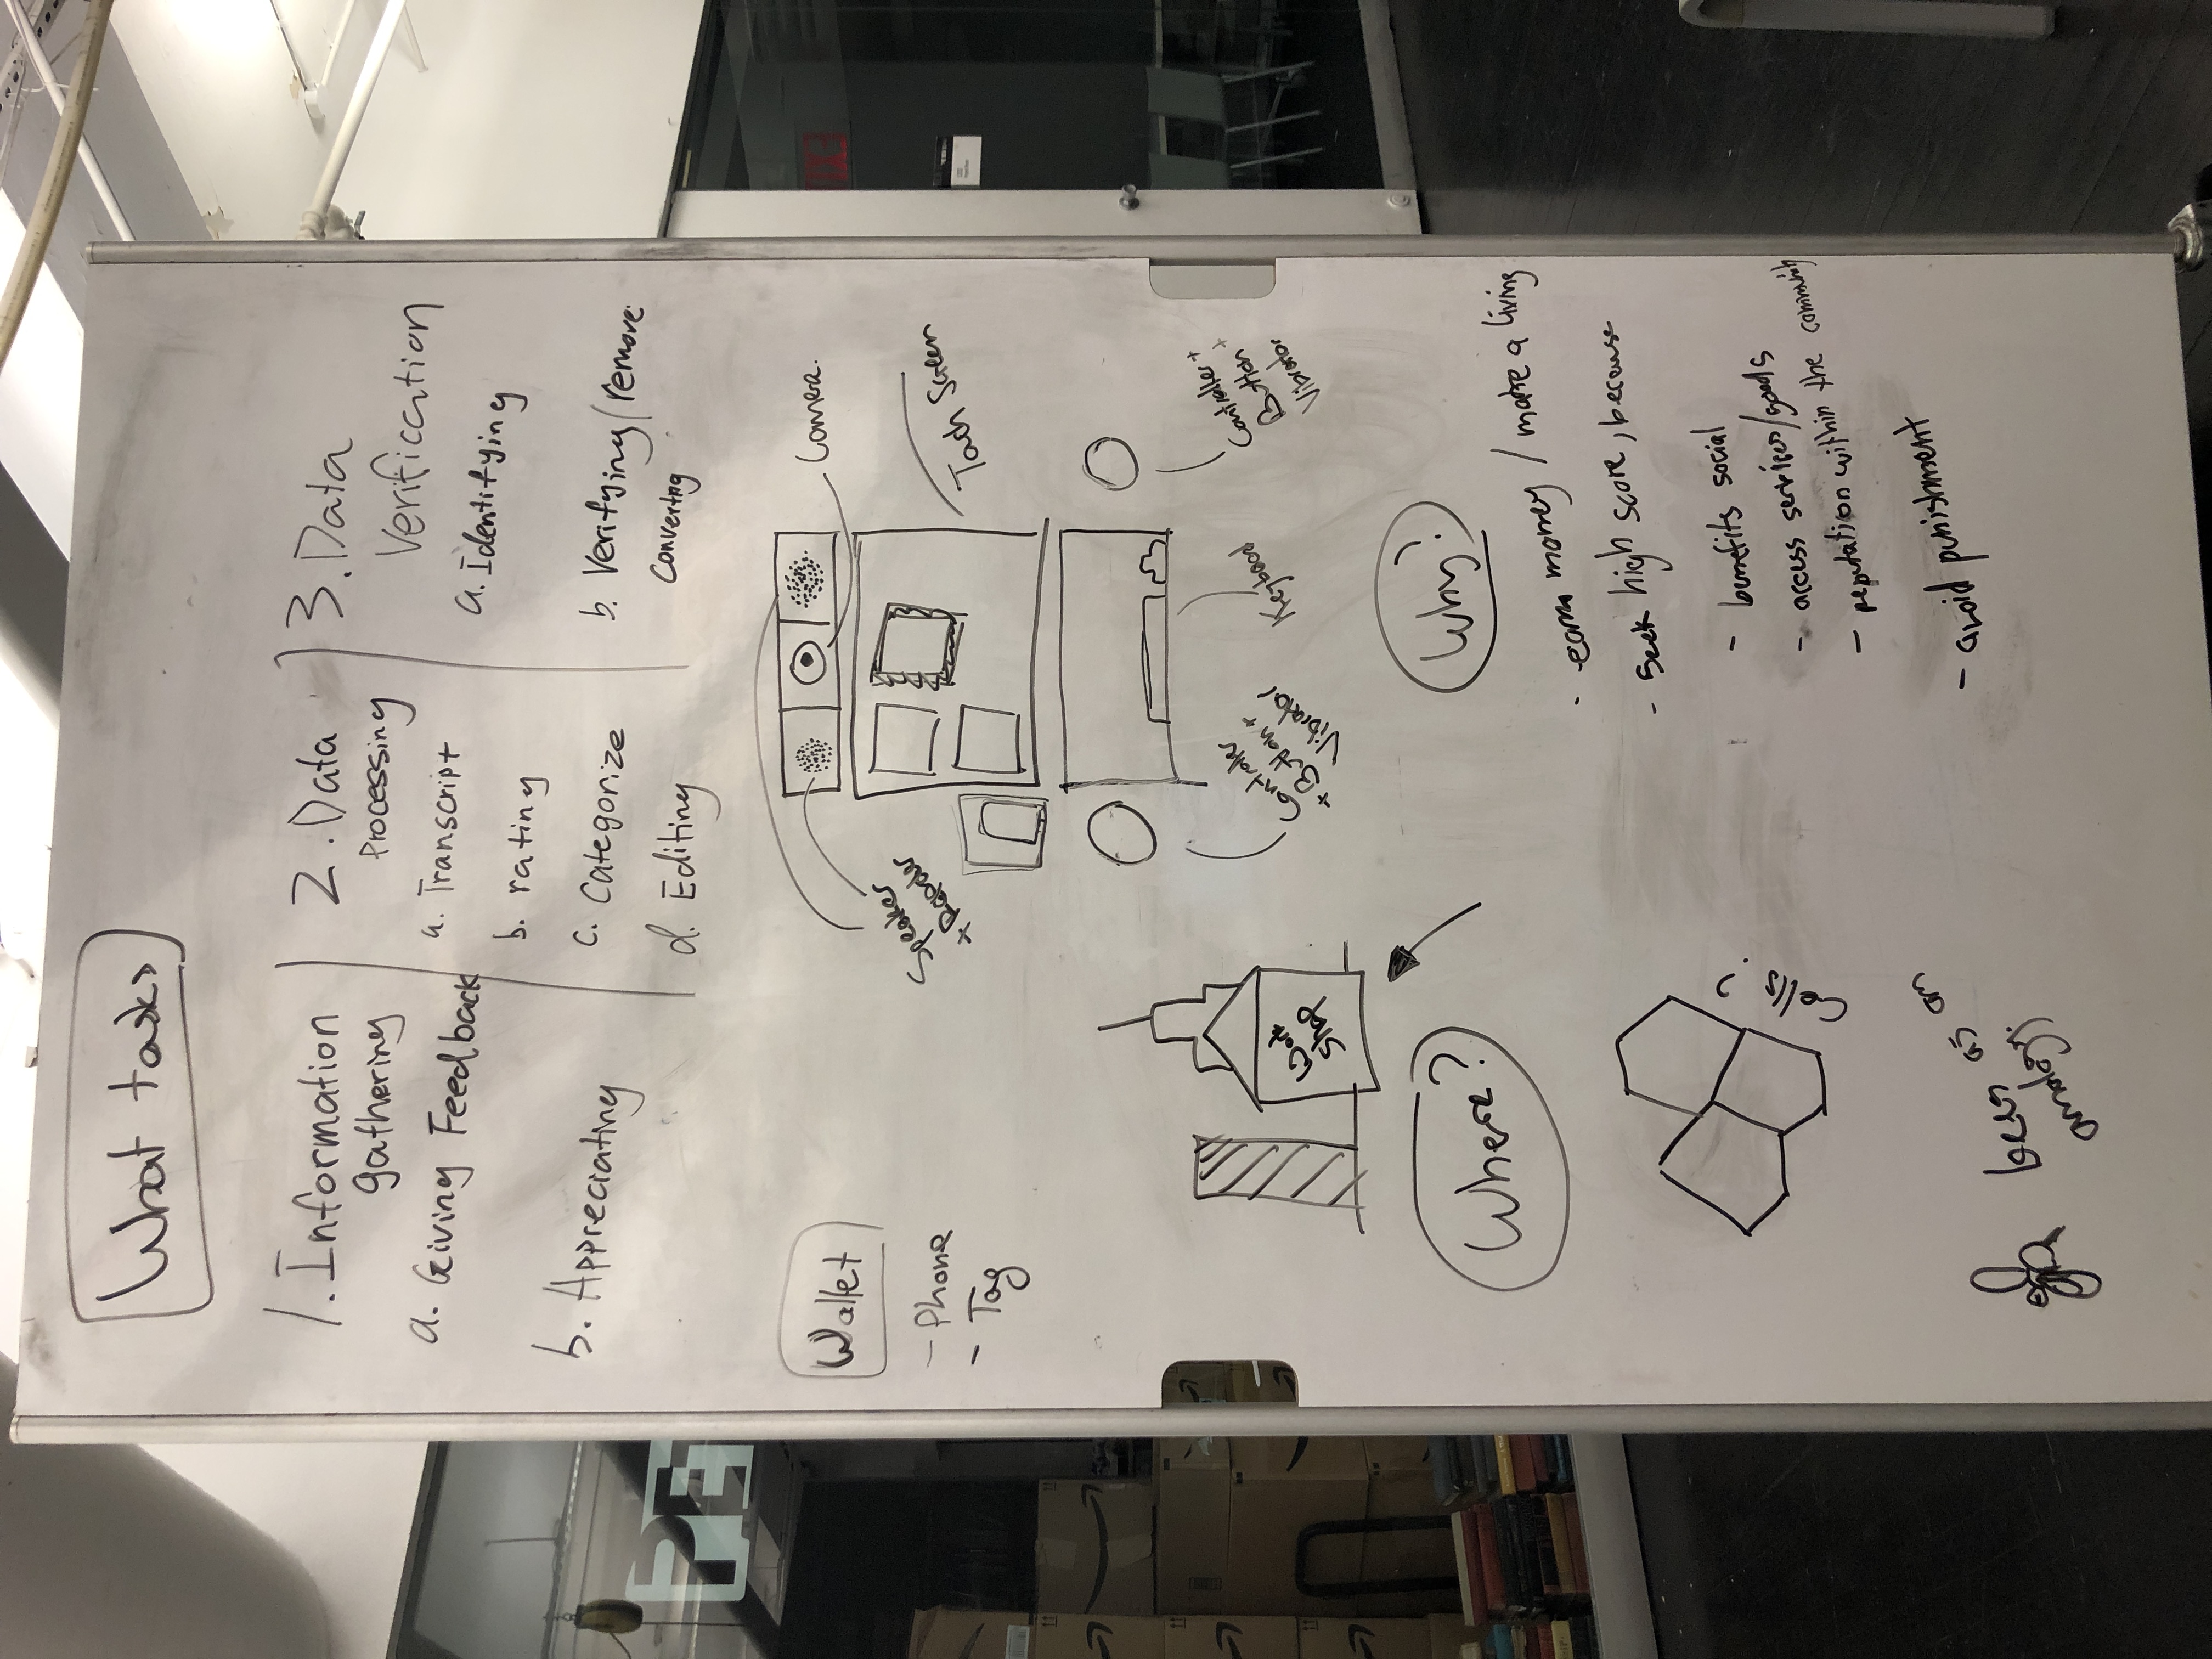 What tasks
1. Information
gathering
a. Giving Feedback
b. Appreciating
2. Data
Processing
a. Transcript
b. rating
c. Categorize
d. Editing
3. Data
Verification
a. Identifying
b. Verifying/remove
Converting
Wallet
- Phone
- Tag
Speaker
+
Camera.
Screen
Controller
+ Button +
Vibrator
Keyboard
Controller +
Button +
Vibrator
Work
Shop
Where?
Cells?
bees as an
analogy.
Why?
- earn money / make a living
- Seek high score, because
- benefits social
- access services/goods
- reputation within the community
- avoid punishment
PET
EXIT